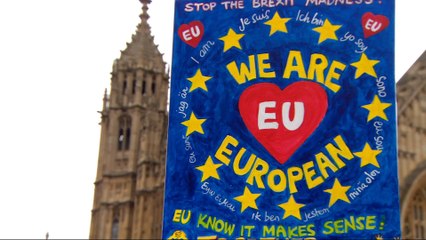 STOP THE BREXIT MADNESS!
EU
EU
I am
Je suis
Ich bin
yo soy
Sono
jag är
WE ARE
EU
EUROPEAN
ik ben
jestem
minä olen
EU KNOW IT MAKES SENSE!